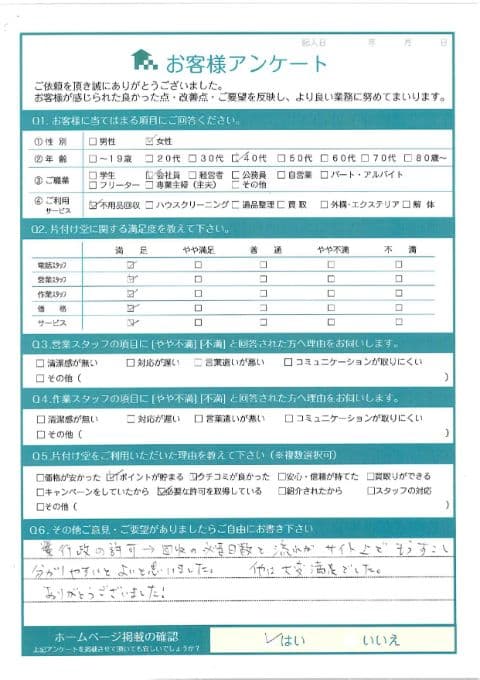 記入日 年 月 日
お客様アンケート
ご依頼を頂き誠にありがとうございました。
お客様が感じられた良かった点・改善点・ご要望を反映し、より良い業務に努めてまいります。
Q1. お客様に当てはまる項目にご回答ください。
①性 別 □男性 ☑女性
②年 齢 □～19歳 □20代 □30代 ☑40代 □50代 □60代 □70代 □80歳～
③ご職業 □学生 ☑会社員 □経営者 □公務員 □自営業 □パート・アルバイト
□フリーター □専業主婦（主夫） □その他
④ご利用サービス ☑不用品回収 □ハウスクリーニング □遺品整理 □買 取 □外構・エクステリア □解 体
Q2. 片付け堂に関する満足度を教えて下さい。
満 足 やや満足 普 通 やや不満 不 満
電話スタッフ ☑ □ □ □ □
営業スタッフ ☑ □ □ □ □
作業スタッフ ☑ □ □ □ □
価 格 ☑ □ □ □ □
サービス ☑ □ □ □ □
Q3.営業スタッフの項目に [やや不満] [不満] と回答された方へ理由をお伺いします。
□清潔感が無い □対応が遅い □言葉遣いが悪い □コミュニケーションが取りにくい
□その他（ ）
Q4.作業スタッフの項目に [やや不満] [不満] と回答された方へ理由をお伺いします。
□清潔感が無い □対応が遅い □言葉遣いが悪い □コミュニケーションが取りにくい
□その他（ ）
Q5.片付け堂をご利用いただいた理由を教えて下さい（※複数選択可）
□価格が安かった ☑ポイントが貯まる ☑クチコミが良かった □安心・信頼が持てた □買取りができる
□キャンペーンをしていたから ☑必要な許可を取得している □紹介されたから □スタッフの対応
□その他（ ）
Q6. その他ご意見・ご要望がありましたらご自由にお書き下さい
行政の許可→回収の必要日数と流れが サイト上でもうすこし
分かりやすいとよいと思いました。 他は大変満足でした。
ありがとうございました！
ホームページ掲載の確認 ✓はい いいえ
上記アンケートを掲載させて頂いても宜しいでしょうか？